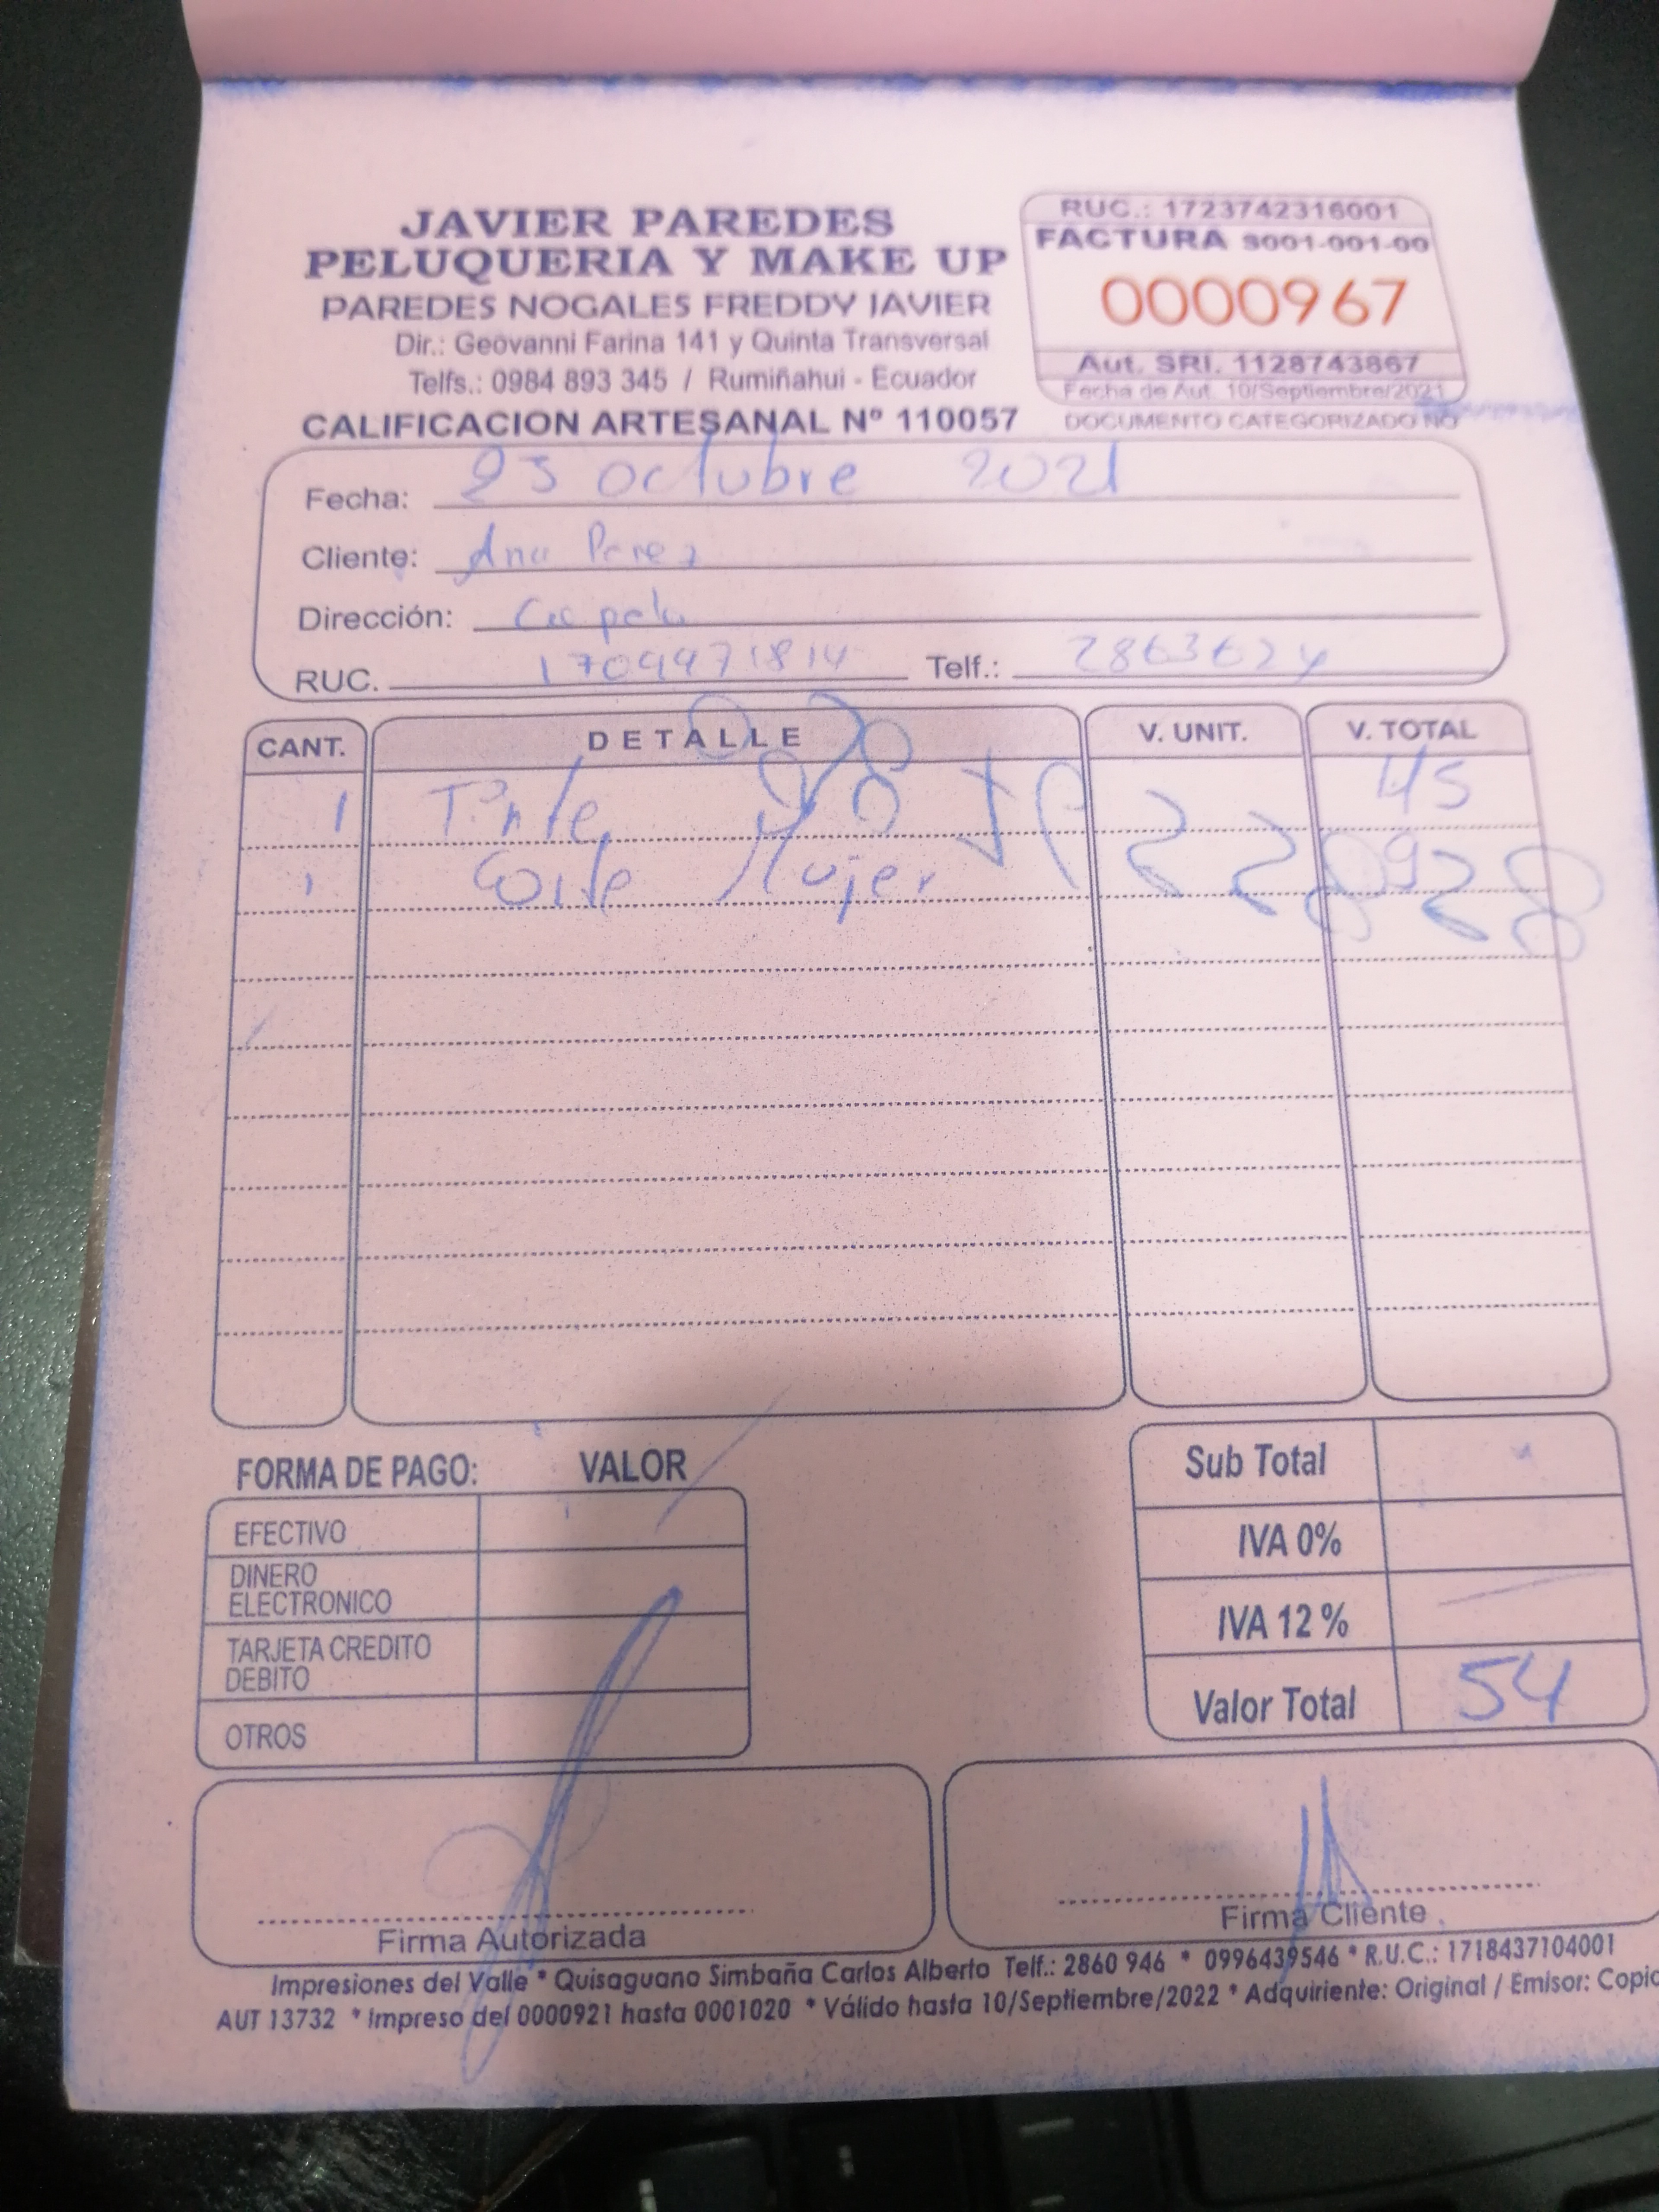 JAVIER PAREDES
PELUQUERIA Y MAKE UP
PAREDES NOGALES FREDDY JAVIER
Dir.: Geovanni Farina 141 y Quinta Transversal
Telfs.: 0984 893 345 / Rumiñahui - Ecuador
CALIFICACION ARTESANAL Nº 110057
RUC.: 1723742316001
FACTURA S001-001-00
0000967
Aut. SRI. 1128743867
Fecha de Aut. 10/Septiembre/2021
DOCUMENTO CATEGORIZADO NO
Fecha: 23 octubre 2021
Cliente: Ana Perez
Dirección:
RUC. 1704971814 Telf.: 2863624
CANT. DETALLE V. UNIT. V. TOTAL
1 Tinte 45
1 Corte Mujer 9
FORMA DE PAGO: VALOR
EFECTIVO
DINERO
ELECTRONICO
TARJETA CREDITO
DEBITO
OTROS
Sub Total
IVA 0%
IVA 12 %
Valor Total 54
Firma Autorizada
Firma Cliente
Impresiones del Valle * Quisaguano Simbaña Carlos Alberto Telf.: 2860 946 * 0996439546 * R.U.C.: 1718437104001
AUT 13732 * Impreso del 0000921 hasta 0001020 * Válido hasta 10/Septiembre/2022 * Adquiriente: Original / Emisor: Copia